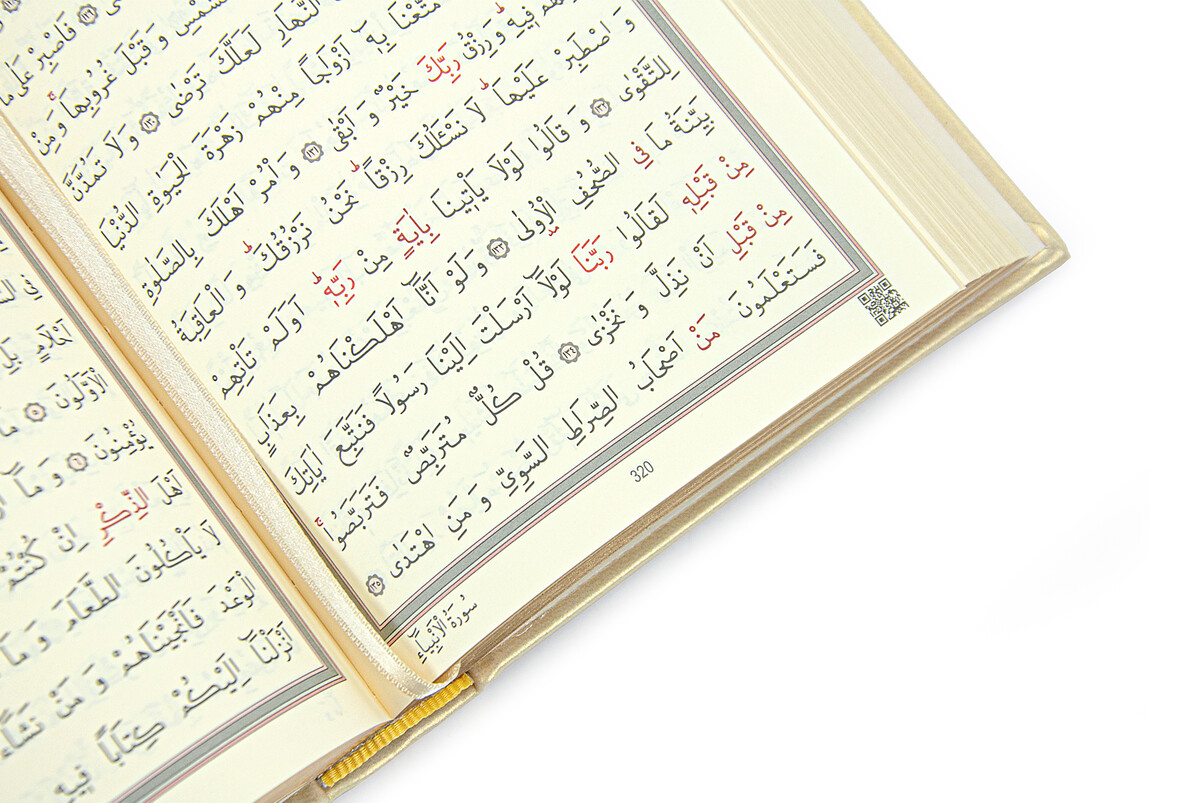 فَاصْبِرْ عَلٰى مَا
وَ قَبْلَ غُرُوبِهَاۚ وَ مِنْ
النَّهَارِ لَعَلَّكَ تَرْضٰى ﴿١٣٠﴾ وَ لَا تَمُدَّنَّ
مَتَّعْنَا بِهٖٓ اَزْوَاجاً مِنْهُمْ زَهْرَةَ الْحَيٰوةِ الدُّنْيَا
فٖيهِؕ وَ رِزْقُ رَبِّكَ خَيْرٌ وَ اَبْقٰى ﴿١٣١﴾ وَ اْمُرْ اَهْلَكَ بِالصَّلٰوةِ
وَ اصْطَبِرْ عَلَيْهَاؕ لَا نَسْـَٔلُكَ رِزْقاًؕ نَحْنُ نَرْزُقُكَؕ وَ الْعَاقِبَةُ
لِلتَّقْوٰى ﴿١٣٢﴾ وَ قَالُوا لَوْلَا يَاْتٖينَا بِاٰيَةٍ مِنْ رَبِّهٖؕ اَوَلَمْ تَاْتِهِمْ
بَيِّنَةُ مَا فِي الصُّحُفِ الْاُولٰى ﴿١٣٣﴾ وَ لَوْ اَنَّٓا اَهْلَكْنَاهُمْ بِعَذَابٍ
مِنْ قَبْلِهٖ لَقَالُوا رَبَّنَا لَوْلَٓا اَرْسَلْتَ اِلَيْنَا رَسُولاً فَنَتَّبِعَ اٰيَاتِكَ
مِنْ قَبْلِ اَنْ نَذِلَّ وَ نَخْزٰى ﴿١٣٤﴾ قُلْ كُلٌّ مُتَرَبِّصٌ فَتَرَبَّصُواۚ
فَسَتَعْلَمُونَ مَنْ اَصْحَابُ الصِّرَاطِ السَّوِيِّ وَ مَنِ اهْتَدٰى ﴿١٣٥﴾
320
سُورَةُ الْاَنْبِيَٓاءِ
اَحْلَامٍ
الْاَوَّلُونَ ﴿٥﴾
يُؤْمِنُونَ ﴿٦﴾ وَ مَٓا
اَهْلَ الذِّكْرِ اِنْ كُنْتُمْ
لَا يَاْكُلُونَ الطَّعَامَ وَ مَا
الْوَعْدَ فَاَنْجَيْنَاهُمْ وَ مَنْ نَشَٓاءُ
اَنْزَلْنَٓا اِلَيْكُمْ كِتَاباً فٖيهِ